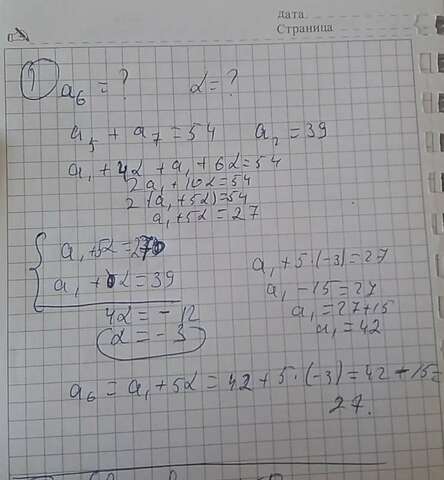 дата
Страница
1) a₆ = ? d = ?
a₅ + a₇ = 54 a₂ = 39
a₁ + 4d + a₁ + 6d = 54
2a₁ + 10d = 54
2(a₁ + 5d) = 54
a₁ + 5d = 27
a₁ + 5d = 27
a₁ + d = 39
4d = - 12
d = - 3
a₁ + 5·(-3) = 27
a₁ - 15 = 27
a₁ = 27 + 15
a₁ = 42
a₆ = a₁ + 5d = 42 + 5·(-3) = 42 - 15 =
27.